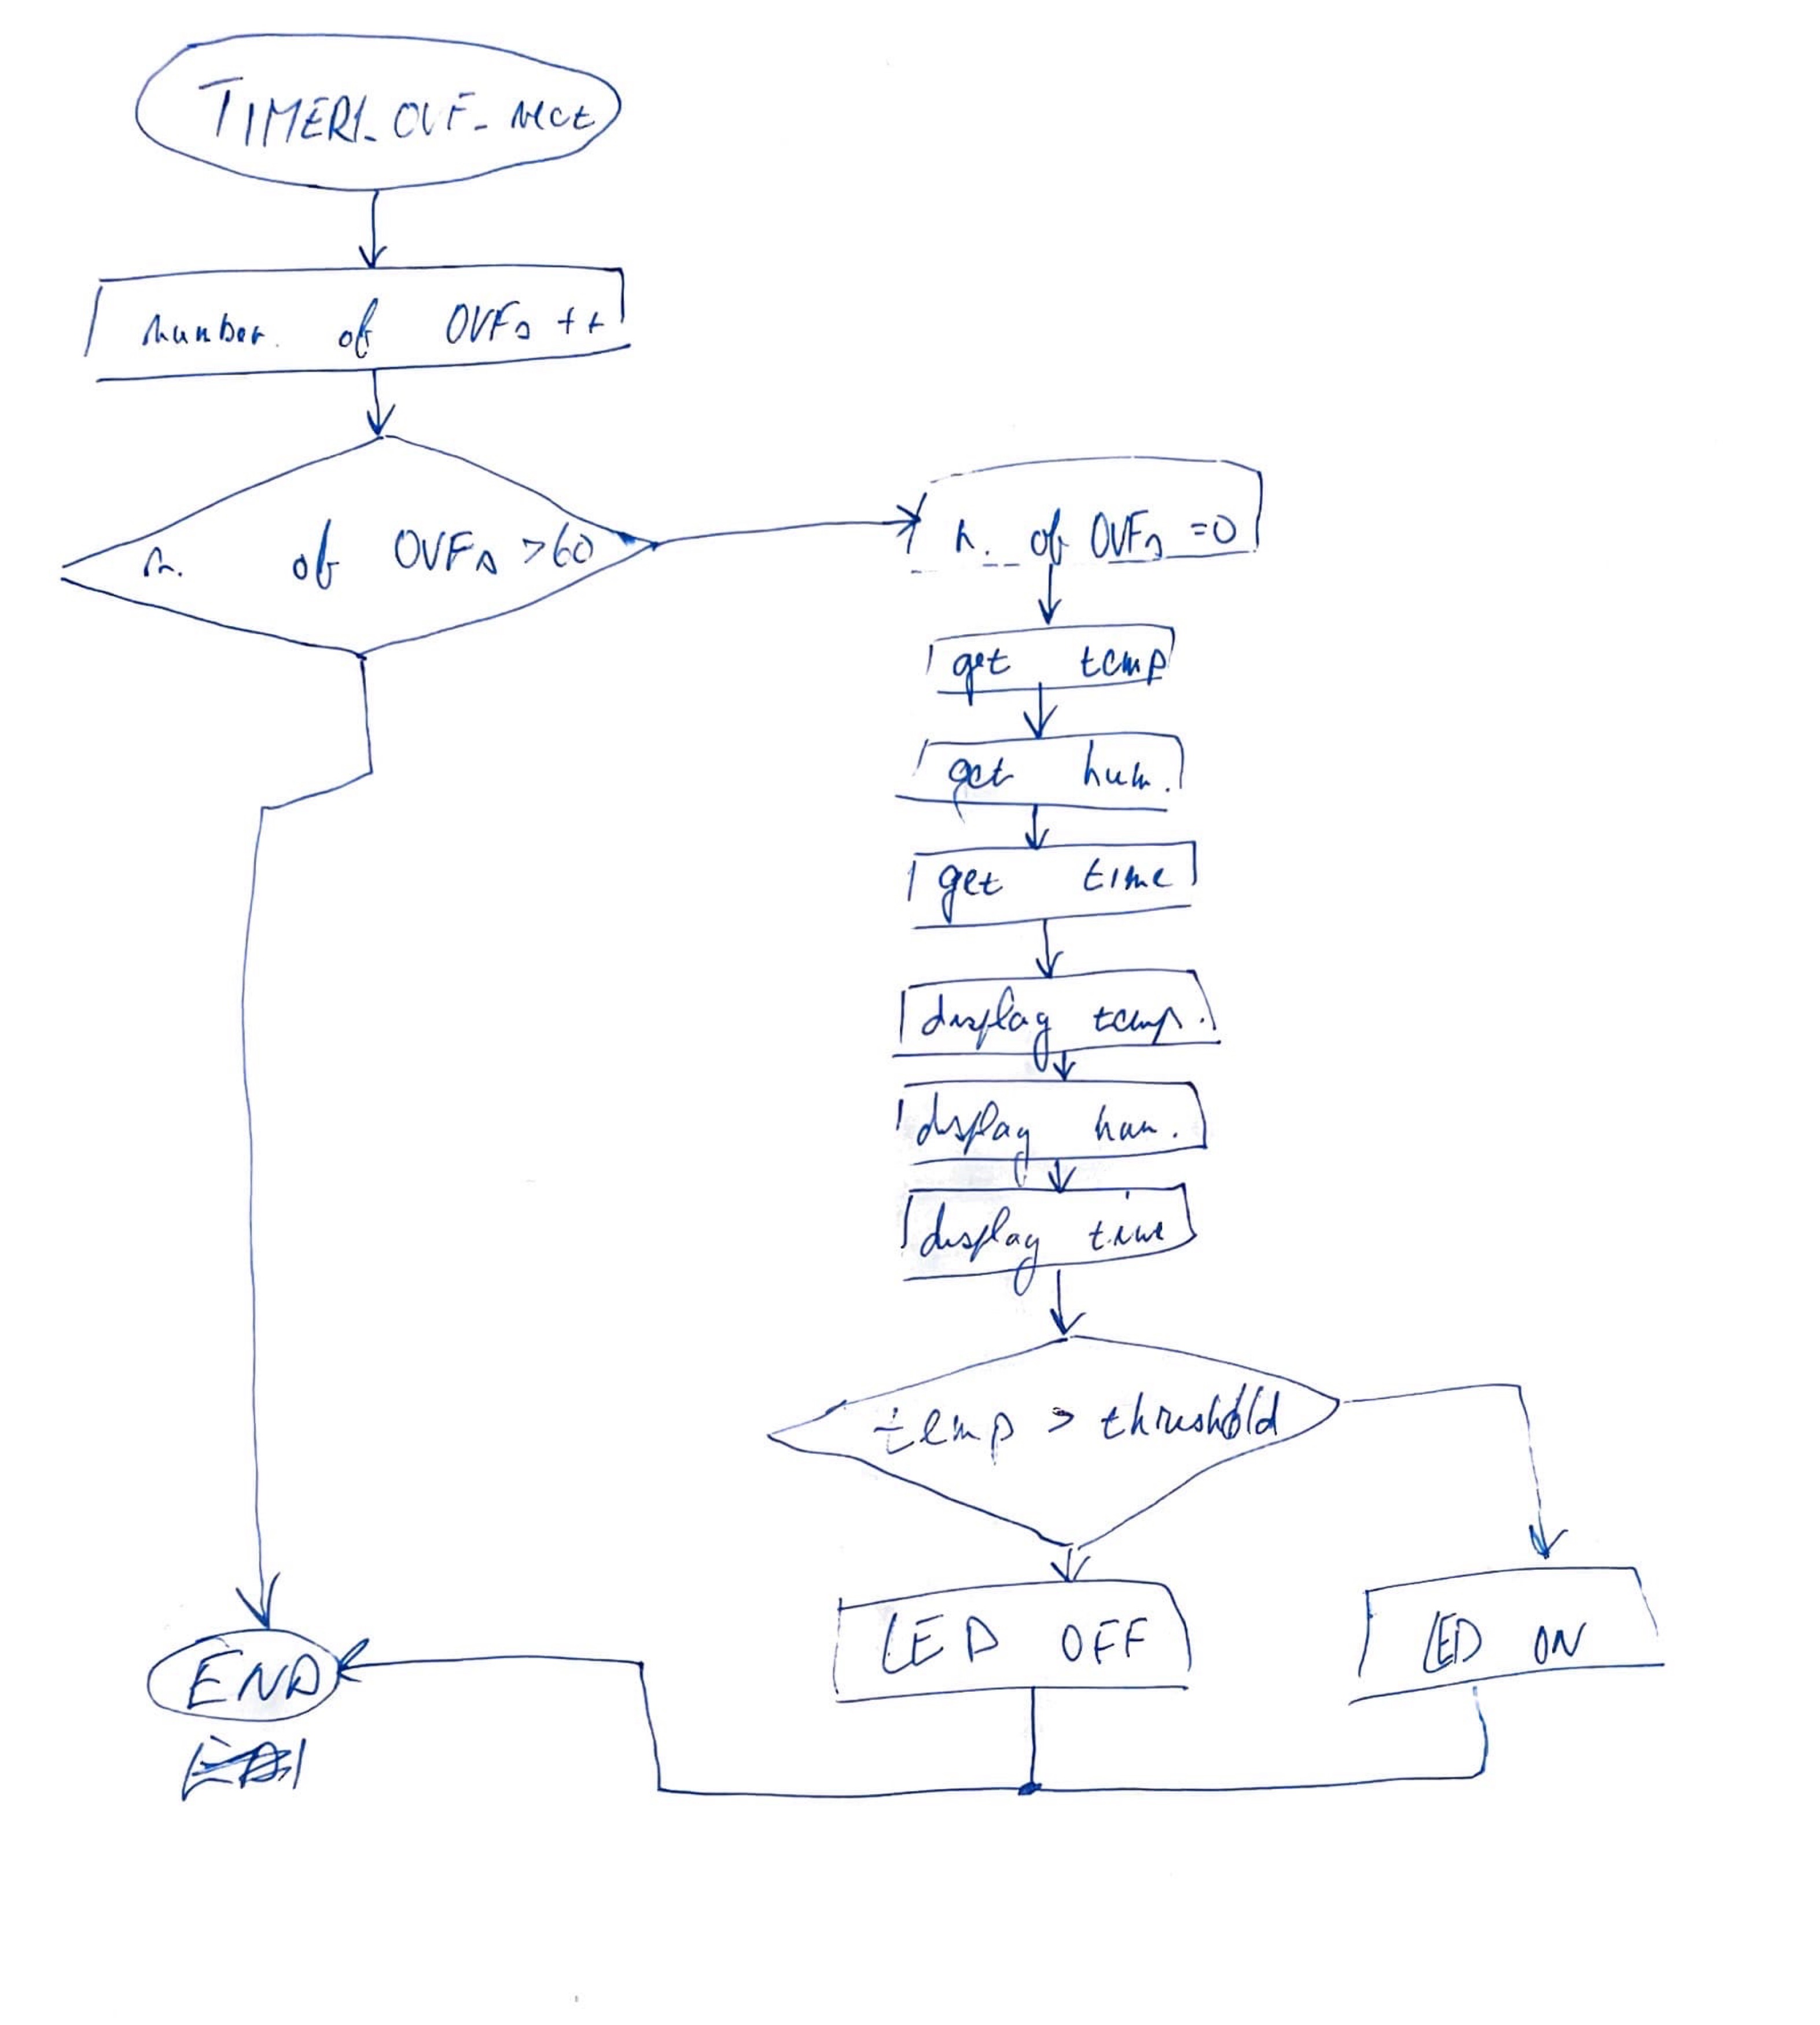 TIMER1_OVF_vect
number of OVFs ++
n. of OVFs >60
n. of OVFs =0
get temp
get hum.
get time
display temp.
display hum.
display time
temp > threshold
LED OFF
LED ON
END